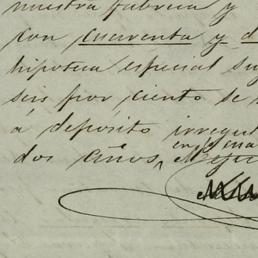 nuestra fabrica y
con cuarenta y d
hipoteca especial su
seis por ciento se
á depósito irregul
dos años,